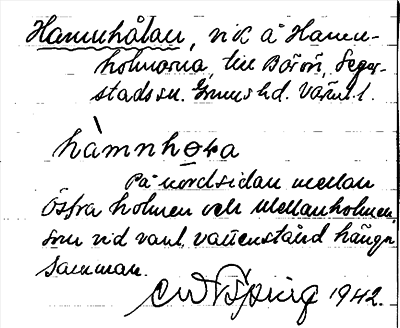 Hamnhålan, vik å Hamn-
holmarna, till Bärön, Seger-
stads sn. Grums hd. Värml.
hàmnhɵɫa
På nordsidan mellan
Östra holmen och Mellanholmen,
som vid vanl. vattenstånd hänga
samman.
1942.